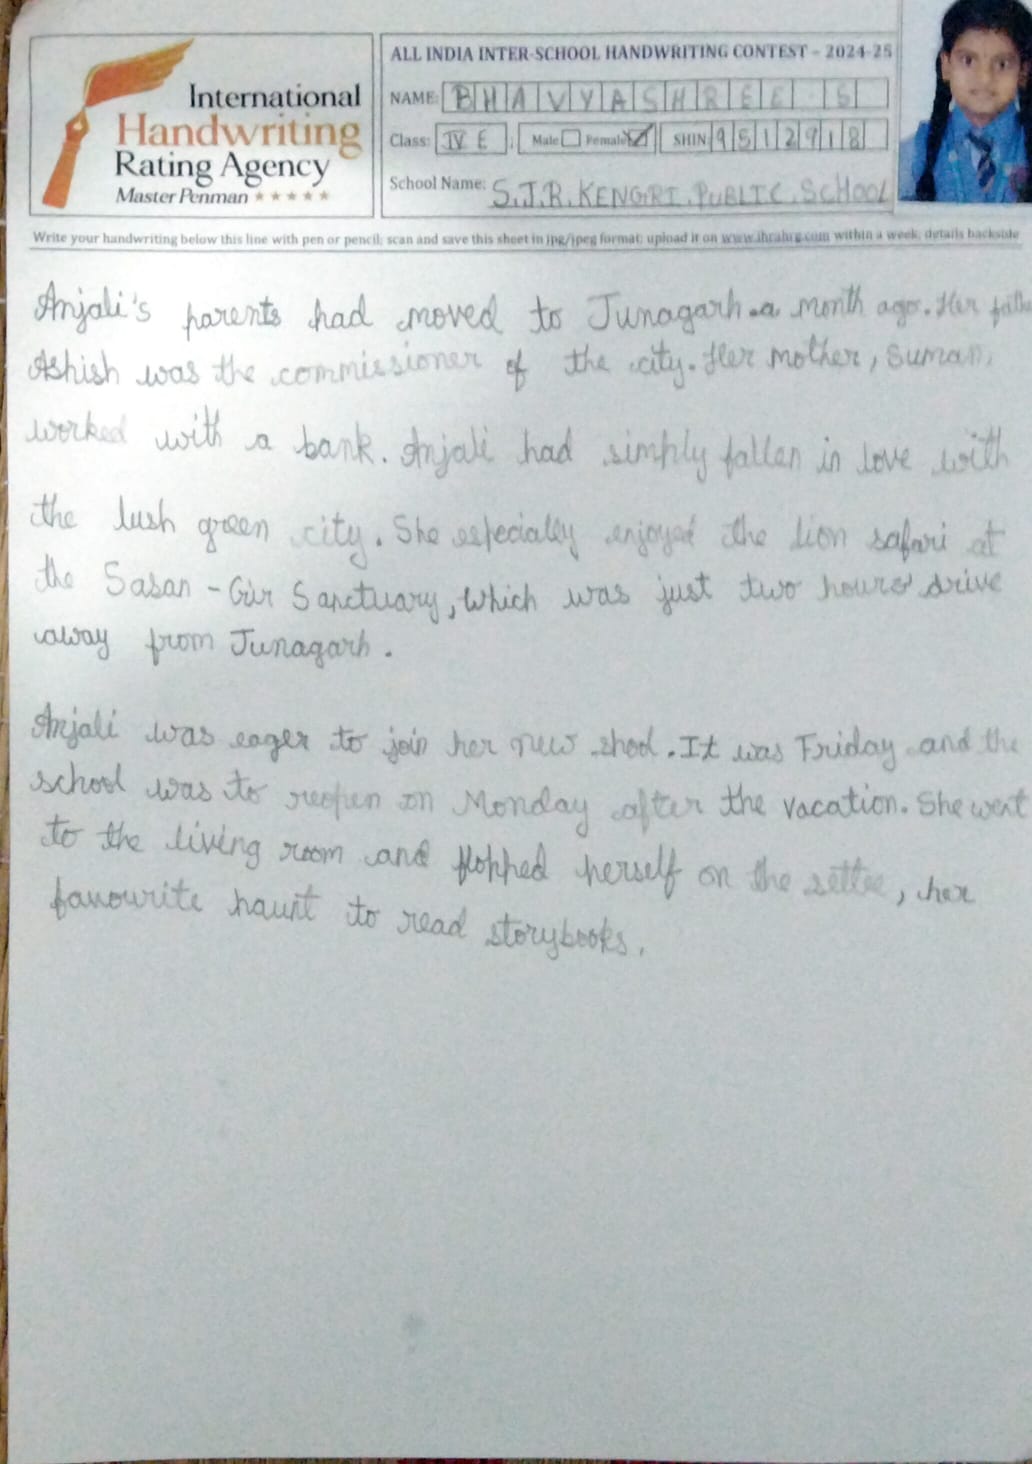 International
Handwriting
Rating Agency
Master Penman ★★★★★
ALL INDIA INTER-SCHOOL HANDWRITING CONTEST – 2024-25
NAME: BHAVYASHREE S
Class: IV E Male Female SHIN 9512918
School Name: S.J.R. KENGRI. PUBLIC. SCHOOL
Write your handwriting below this line with pen or pencil; scan and save this sheet in jpg/jpeg format; upload it on www.ihrahrg.com within a week; details backside
Anjali's parents had moved to Junagarh a month ago. Her
Ashish was the commissioner of the city. Her mother, Suman,
worked with a bank. Anjali had simply fallen in love with
the lush green city. She especially enjoyed the lion safari at
the Sasan - Gir Sanctuary, which was just two hours drive
away from Junagarh.
Anjali was eager to join her new . It was Friday and the
school was to reopen on Monday after the vacation. She went
to the living room and flopped herself on the settee, her
favourite haunt to read storybooks.